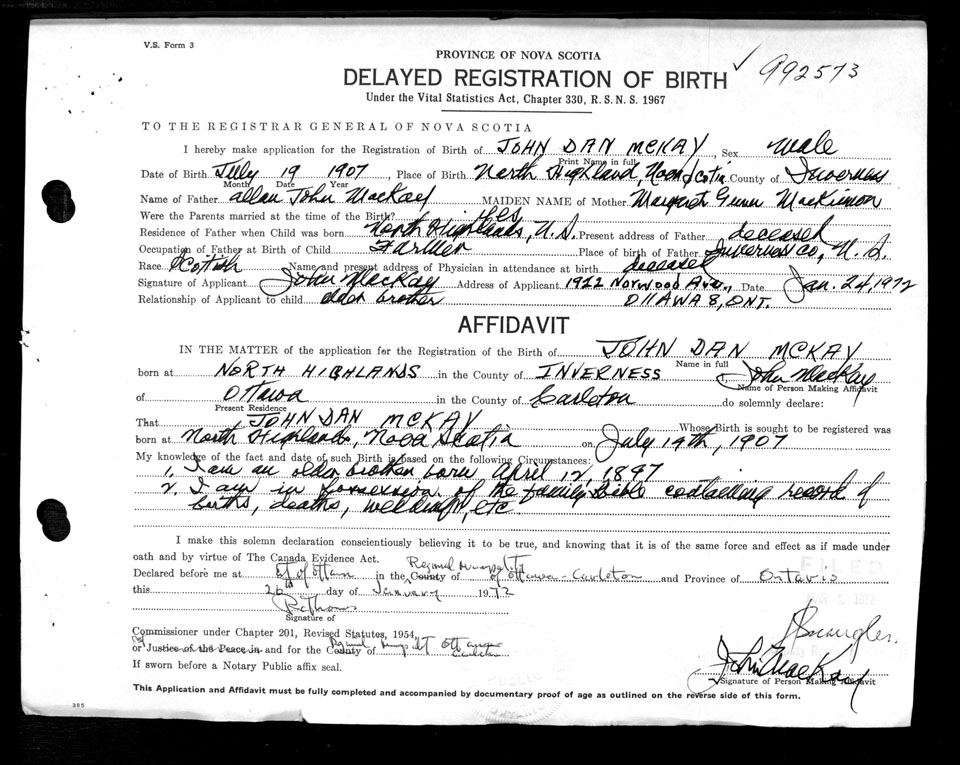 V.S. Form 3
PROVINCE OF NOVA SCOTIA
DELAYED REGISTRATION OF BIRTH ✓ 992573
Under the Vital Statistics Act, Chapter 330, R.S.N.S. 1967
TO THE REGISTRAR GENERAL OF NOVA SCOTIA
I hereby make application for the Registration of Birth of JOHN DAN MCKAY, Sex Male
Print Name in full
Date of Birth July 19 1907, Place of Birth North Highland, Nova Scotia County of Inverness
Month Date Year
Name of Father Allan John MacKay MAIDEN NAME of Mother Margaret Gunn MacKinnon
Were the Parents married at the time of the Birth? Yes
Residence of Father when Child was born North Highlands, N.S. Present address of Father deceased
Occupation of Father at Birth of Child Farmer Place of birth of Father Inverness Co, N.S.
Race Scottish Name and present address of Physician in attendance at birth deceased
Signature of Applicant John MacKay Address of Applicant 1922 Norwood Ave., Date Jan. 24, 1972
Relationship of Applicant to child elder brother OTTAWA 8, ONT.
AFFIDAVIT
IN THE MATTER of the application for the Registration of the Birth of JOHN DAN MCKAY
Name in full
born at NORTH HIGHLANDS in the County of INVERNESS I, John MacKay
Name of Person Making Affidavit
of Ottawa in the County of Carleton do solemnly declare:
Present Residence
That JOHN DAN MCKAY Whose Birth is sought to be registered was
born at North Highlands, Nova Scotia on July 19th, 1907
My knowledge of the fact and date of such Birth is based on the following Circumstances:
1. I am an older brother born April 12, 1897
2. I am in possession of the family Bible containing record of
births, deaths, weddings, etc
I make this solemn declaration conscientiously believing it to be true, and knowing that it is of the same force and effect as if made under
oath and by virtue of The Canada Evidence Act. Regional Municipality
Declared before me at City of Ottawa in the County of of Ottawa-Carleton and Province of Ontario
this 26th day of January 1972
Signature of
Commissioner under Chapter 201, Revised Statutes, 1954,
or Justice of the Peace in and for the County of Ottawa
Carleton
If sworn before a Notary Public affix seal.
FILED
John MacKay
Signature of Person Making Affidavit
This Application and Affidavit must be fully completed and accompanied by documentary proof of age as outlined on the reverse side of this form.
385
PUBLIC